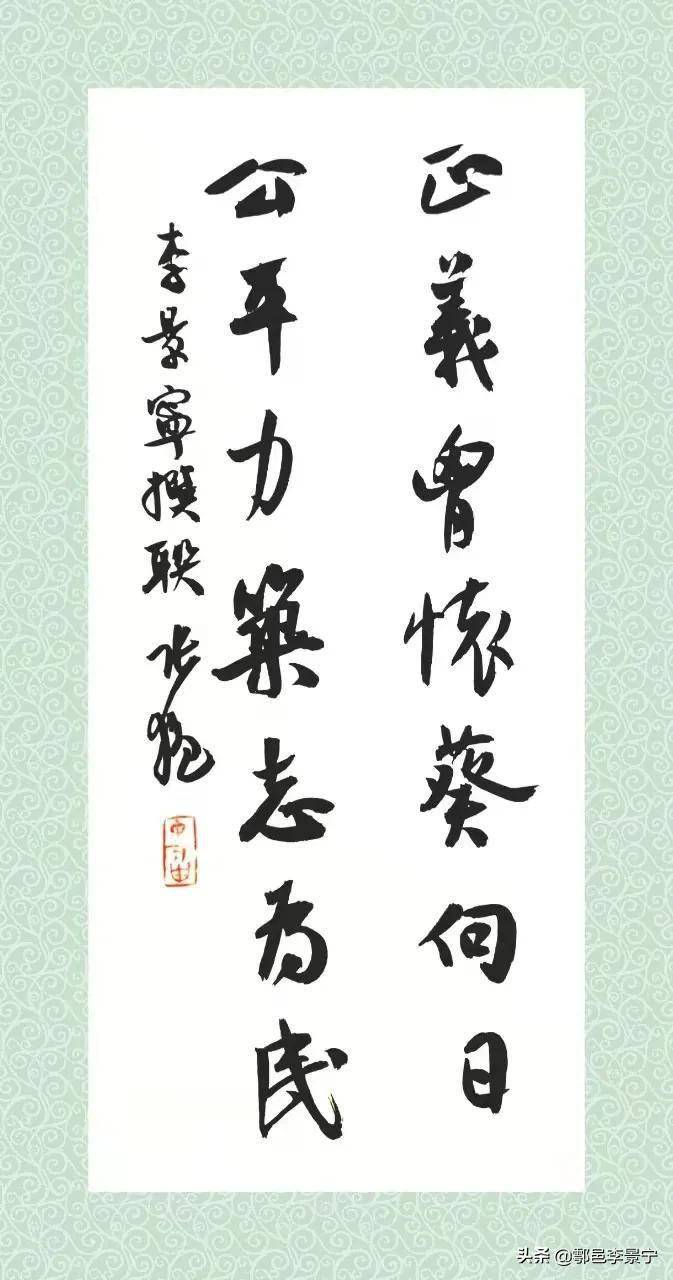 正義胷懷葵向日
公平力築志为民
李景寧撰聯 张
头条 @鄠邑李景宁